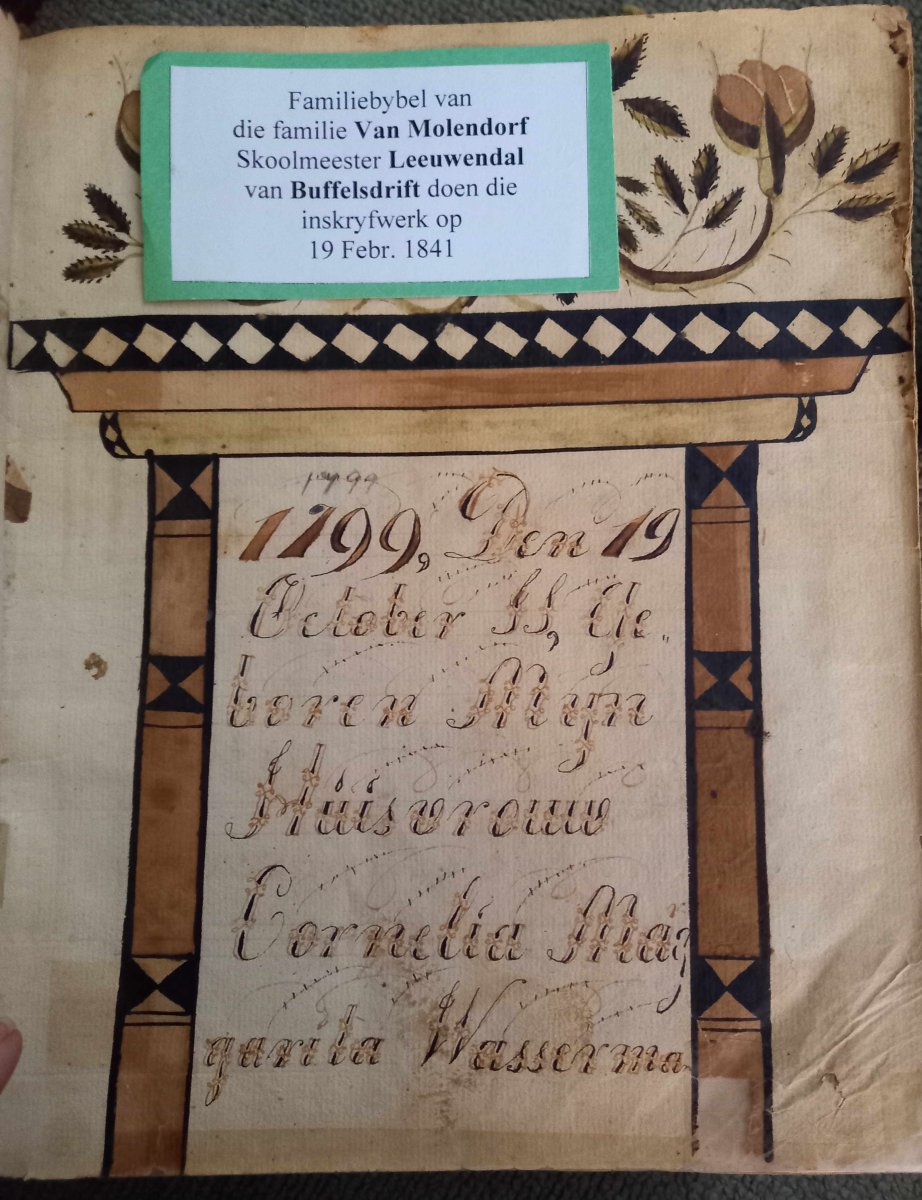 Familiebybel van
die familie Van Molendorf
Skoolmeester Leeuwendal
van Buffelsdrift doen die
inskryfwerk op
19 Febr. 1841
1799
1799, Den 19
October Is, Ge„
boren Myn
Huisvrouw
Cornelia Mag
garita Wasserma